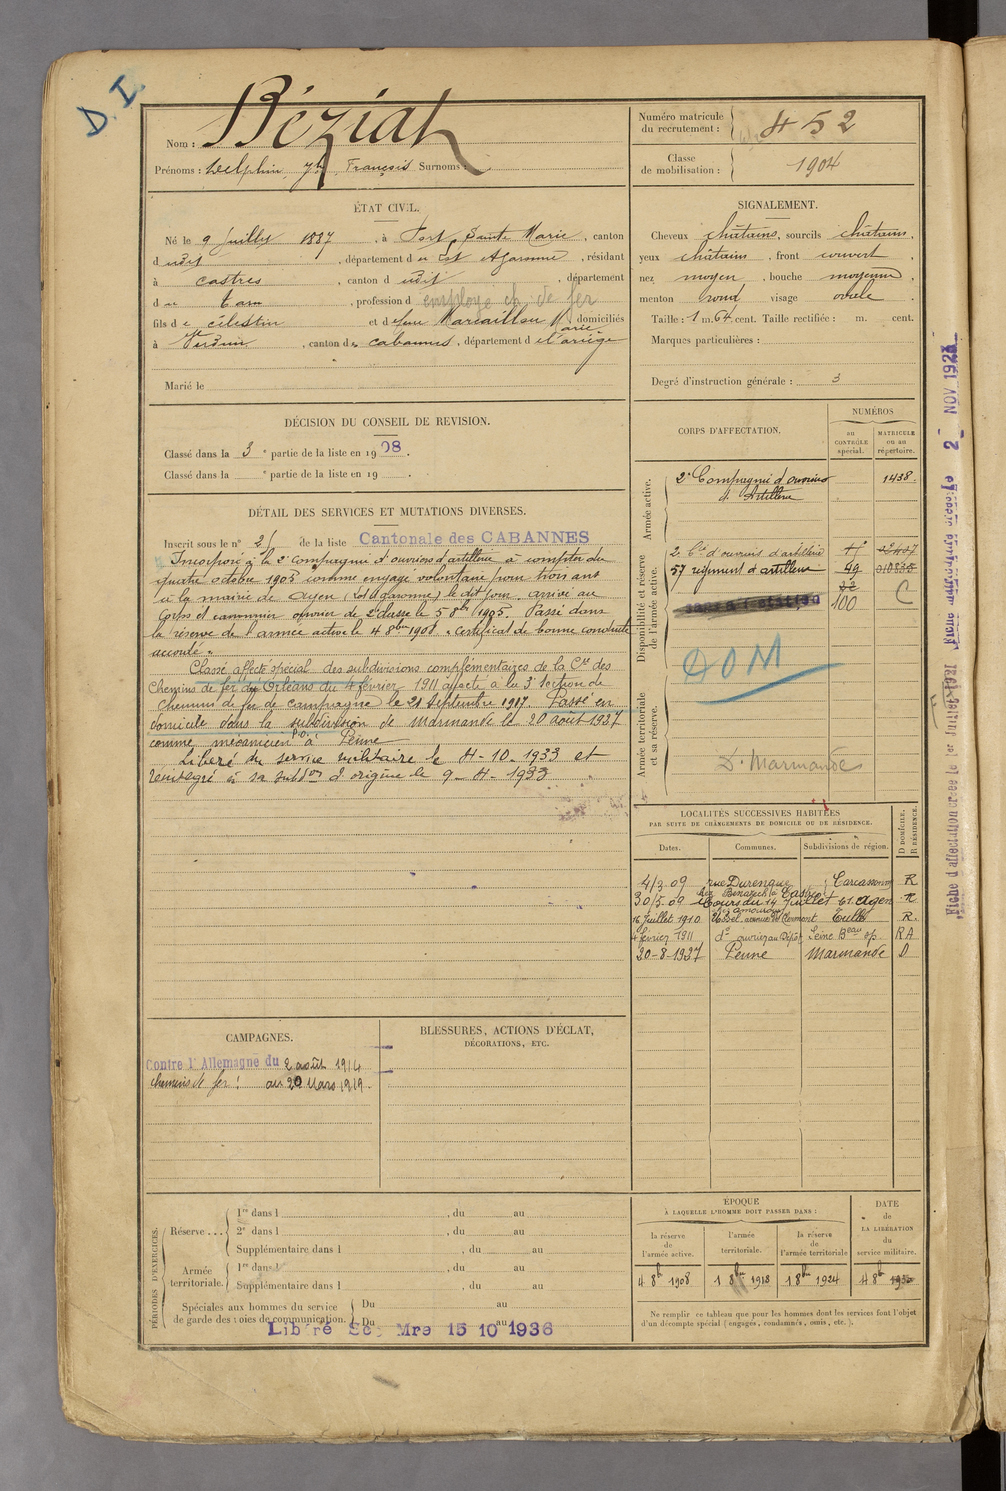 D. I.
Nom : Béziat
Prénoms : Delphin, Jh, François Surnoms :
Numéro matricule du recrutement : 452
Classe de mobilisation : 1904
ÉTAT CIVIL.
Né le 9 Juillet 1887, à Port Sainte Marie, canton
dudit, département de Lot et Garonne, résidant
à Castres, canton dudit, département
du Tarn, profession d employé ch. de fer
fils de Célestin et de feue Marcaillou Marie, domiciliés
à Verdun, canton des Cabannes, département de l'ariège
Marié le
SIGNALEMENT.
Cheveux châtains, sourcils châtains,
yeux châtains, front couvert,
nez moyen, bouche moyenne,
menton rond visage ovale
Taille : 1 m. 64 cent. Taille rectifiée : m. cent.
Marques particulières :
Degré d'instruction générale : 3
DÉCISION DU CONSEIL DE REVISION.
Classé dans la 3e partie de la liste en 1908.
Classé dans la e partie de la liste en 19 .
DÉTAIL DES SERVICES ET MUTATIONS DIVERSES.
Inscrit sous le n° 21 de la liste Cantonale des CABANNES
Incorporé à la 2e compagnie d'ouvriers d'artillerie à compter du
quatre octobre 1905 comme engagé volontaire pour trois ans
à la mairie de Agen (Lot et Garonne) le dit jour. arrivé au
Corps et canonnier ouvrier de 2e classe le 5 8bre 1905. Passé dans
la réserve de l'armée active le 4 8bre 1908. "Certificat de bonne conduite
accordé".
Classé affecté spécial des subdivisions complémentaires de la Cie des
Chemins de fer d'Orléans du 4 février 1911 affecté à la 3e section de
chemins de fer de campagne le 21 septembre 1917 Passé en
domicile dans la subdivision de Marmande le 20 août 1927
comme mécanicien P.O. à Penne
Libéré du service militaire le 4-10-1933 et
réintégré à sa subdon d'origine le 9-4-1933
CORPS D'AFFECTATION.
NUMÉROS
au CONTRÔLE spécial.
MATRICULE ou au répertoire.
Armée active.
2e Compagnie d'ouvriers d'Artillerie 1438.
Disponibilité et réserve de l'armée active.
2e Cie d'ouvriers d'artillerie
57e régiment d'artillerie 49
100 C
DOM
Armée territoriale et sa réserve.
S. Marmande
LOCALITÉS SUCCESSIVES HABITÉES
PAR SUITE DE CHANGEMENTS DE DOMICILE OU DE RÉSIDENCE.
Dates. Communes. Subdivisions de région. D DOMICILE. R RÉSIDENCE.
4/3 09 rue Durenque Castres Carcassonne R
30/5 09 Cours du 14 Juillet 61 Agen R
16 Juillet 1910 Tulle R.
4 février 1911 do ouvrier au Dépôt Seine Beau sp RA
20-8-1927 Penne Marmande D
CAMPAGNES.
Contre l'Allemagne du 2 août 1914
chemins de fer : au 20 Mars 1919.
BLESSURES, ACTIONS D'ÉCLAT,
DÉCORATIONS, ETC.
PÉRIODES D'EXERCICES.
Réserve ....
1re dans l , du au
2e dans l , du au
Supplémentaire dans l , du au
Armée territoriale.
1re dans l , du au
Supplémentaire dans l , du au
Spéciales aux hommes du service de garde des voies de communication.
Du au
Du au
Libéré Sce Mre 15 10 1936
ÉPOQUE
À LAQUELLE L'HOMME DOIT PASSER DANS :
la réserve de l'armée active.
l'armée territoriale.
la réserve de l'armée territoriale
DATE de LA LIBÉRATION du service militaire.
4 8bre 1908
1 8bre 1918
1 8bre 1924
4 8bre
Ne remplir ce tableau que pour les hommes dont les services font l'objet
d'un décompte spécial (engagés, condamnés, omis, etc.).
Fiche d'affectation créée le 1er Juillet 1921
2 NOV 1923